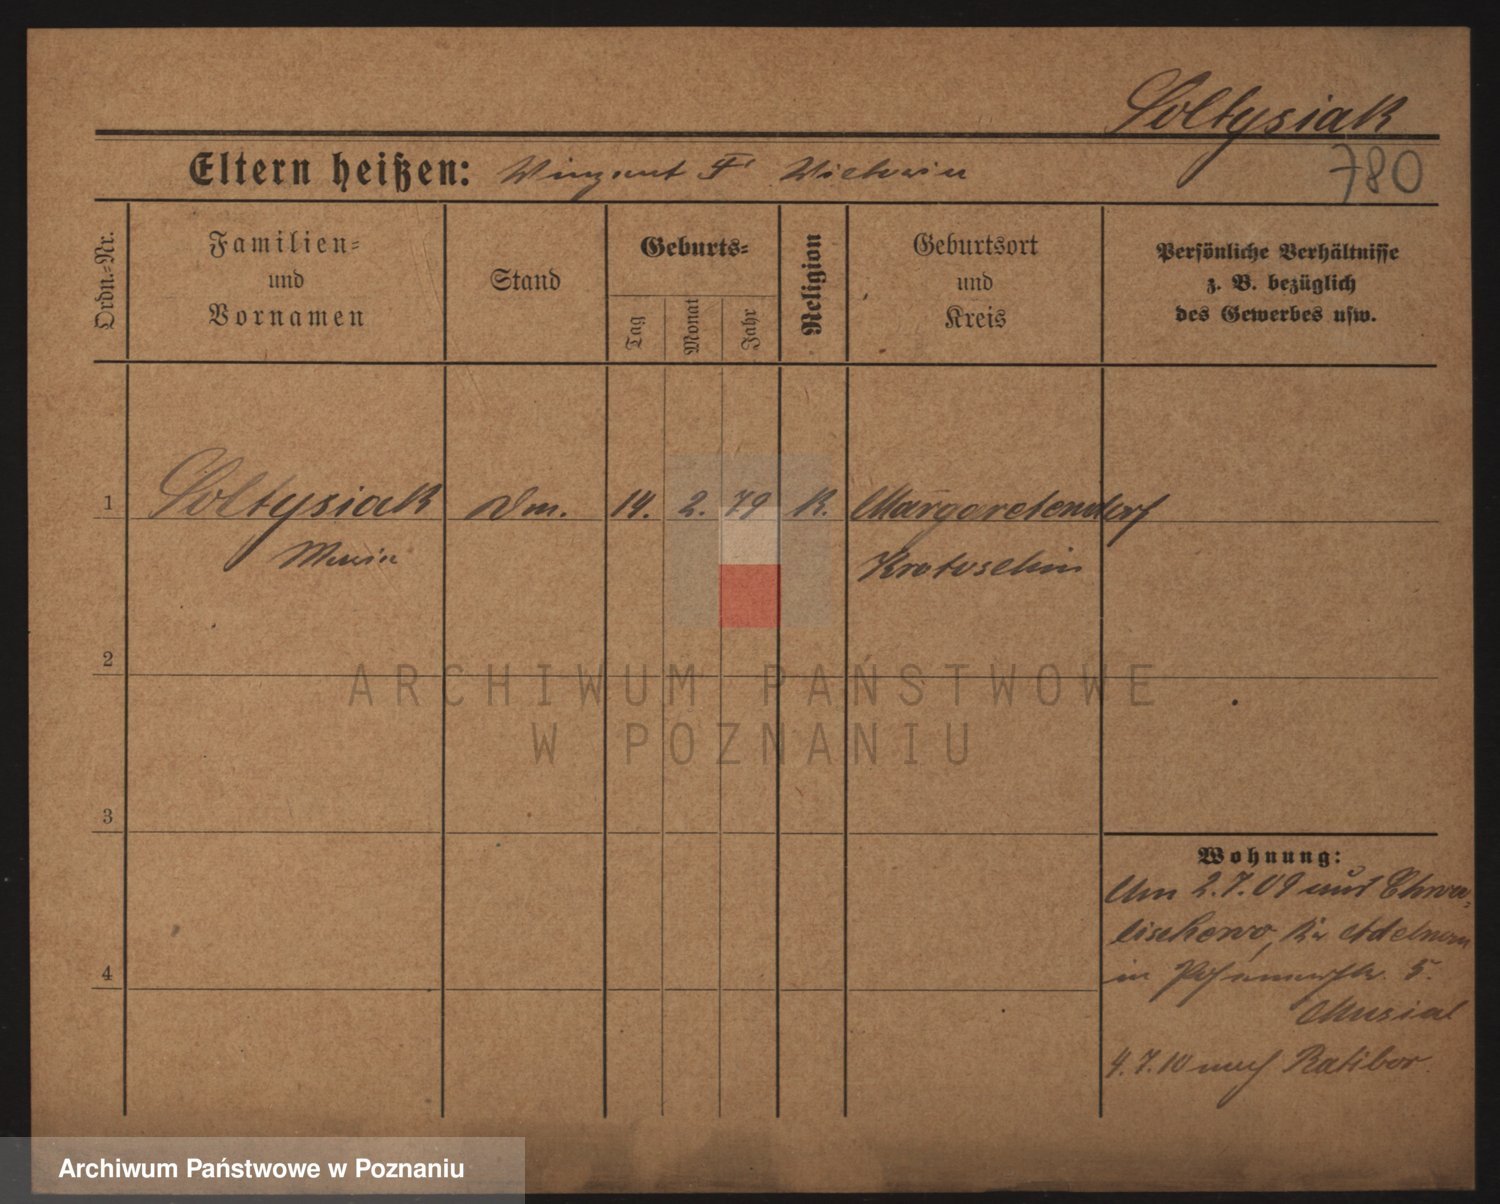 Soltysiak
780
Eltern heißen: Vinzent F Victoria
Ordn.=Nr.
Familien=
und
Vornamen
Stand
Geburts=
Tag
Monat
Jahr
Religion
Geburtsort
und
Kreis
Persönliche Verhältnisse
z. B. bezüglich
des Gewerbes usw.
1 Soltysiak Dm. 14. 2. 79 K. Margaretendorf
Maria Krotoschin
2
3
4
Wohnung:
Am 2.7.09 aus
Kr Adelnau
in 5.
Musial
4.7.10 nach Ratibor
ARCHIWUM PAŃSTWOWE
W POZNANIU
Archiwum Państwowe w Poznaniu